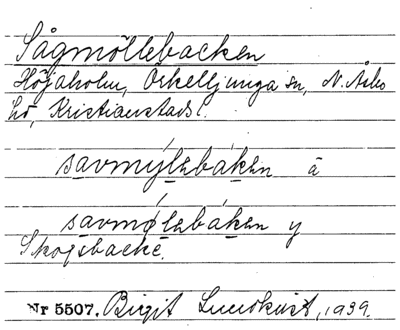 Sågmöllebacken
Höjaholm, Örkelljunga sn, N. Åsbo
hd, Kristianstads l.
savmýlebáken ä
savmølebáken y
Skogsbacke.
Nr 5507. Birgit Lundkvist, 1939.